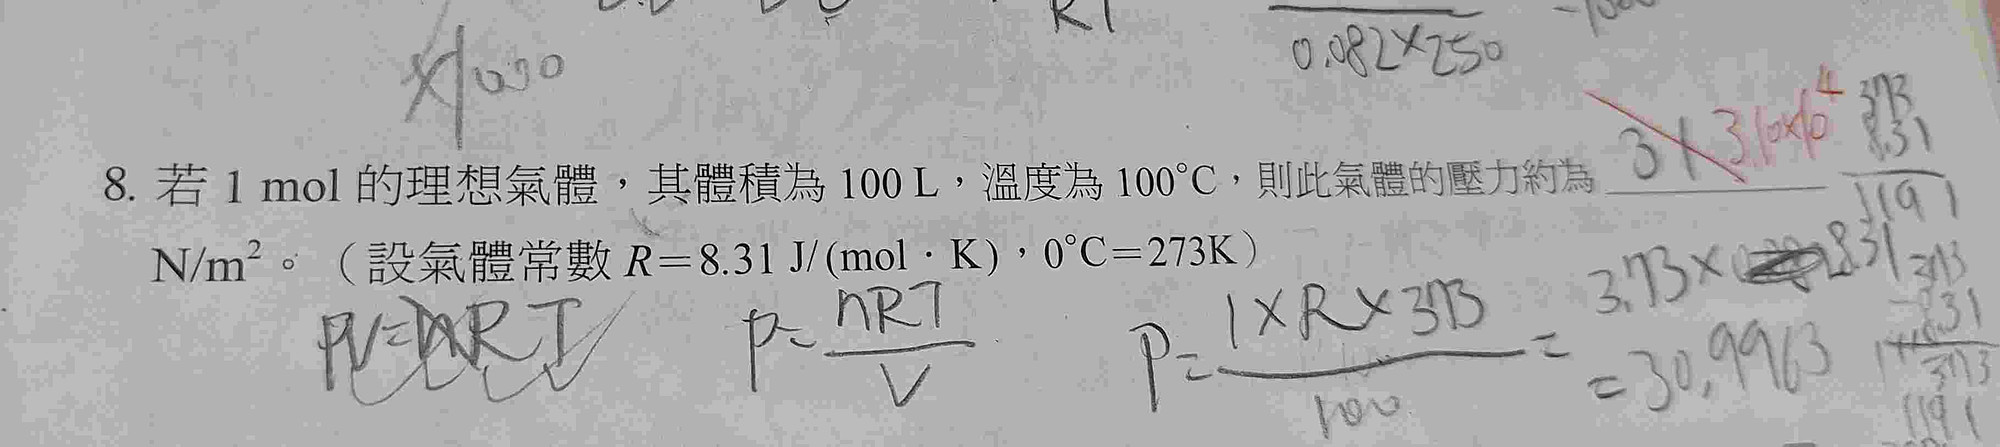 RT
0.082×250
×1000
3.10×10⁴
31
373
8.31
1191
8. 若 1 mol 的理想氣體，其體積為 100 L，溫度為 100°C，則此氣體的壓力約為
N/m²。（設氣體常數 R＝8.31 J/(mol · K)，0°C＝273K）
PV=nRT
P= nRT
V
P= 1×R×373
100
= 3.73× 8.31
= 30.9963
373
373
1191